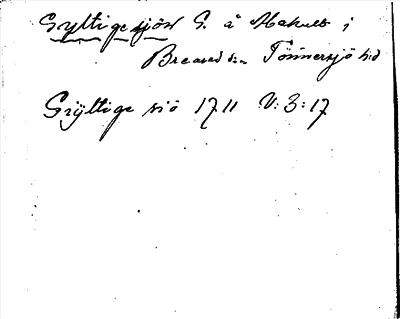 Gyltigesjön S. å Mahult i
Breared sn Tönnersjö hd
Gyltige siö 1711 V:3:17